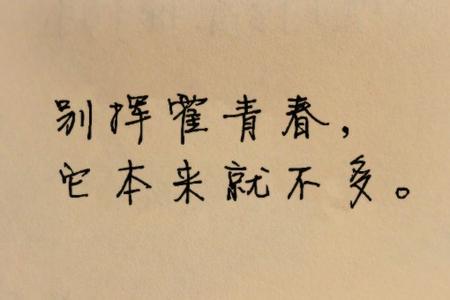 别挥霍青春，
它本来就不多。